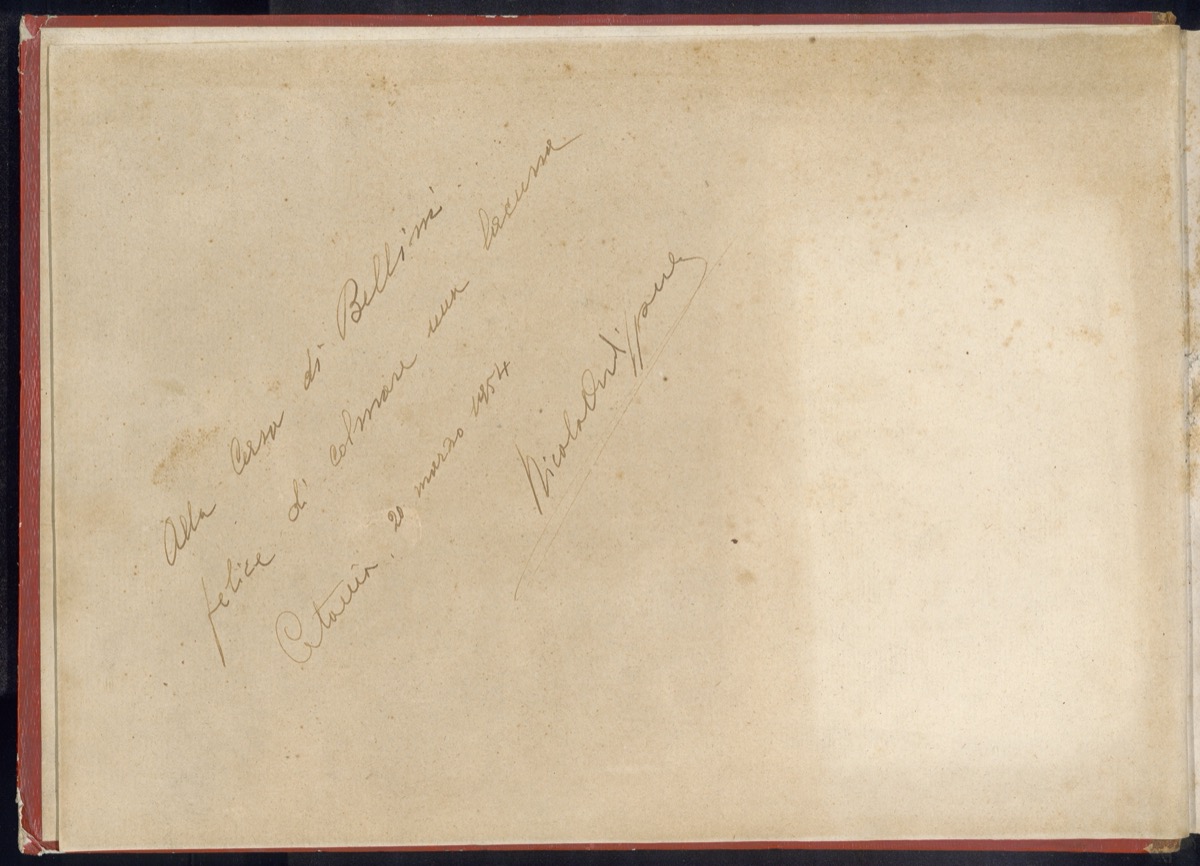 Alla Casa di Bellini
felice di colmare una lacuna
Catania, 20 marzo 1954
Nicola